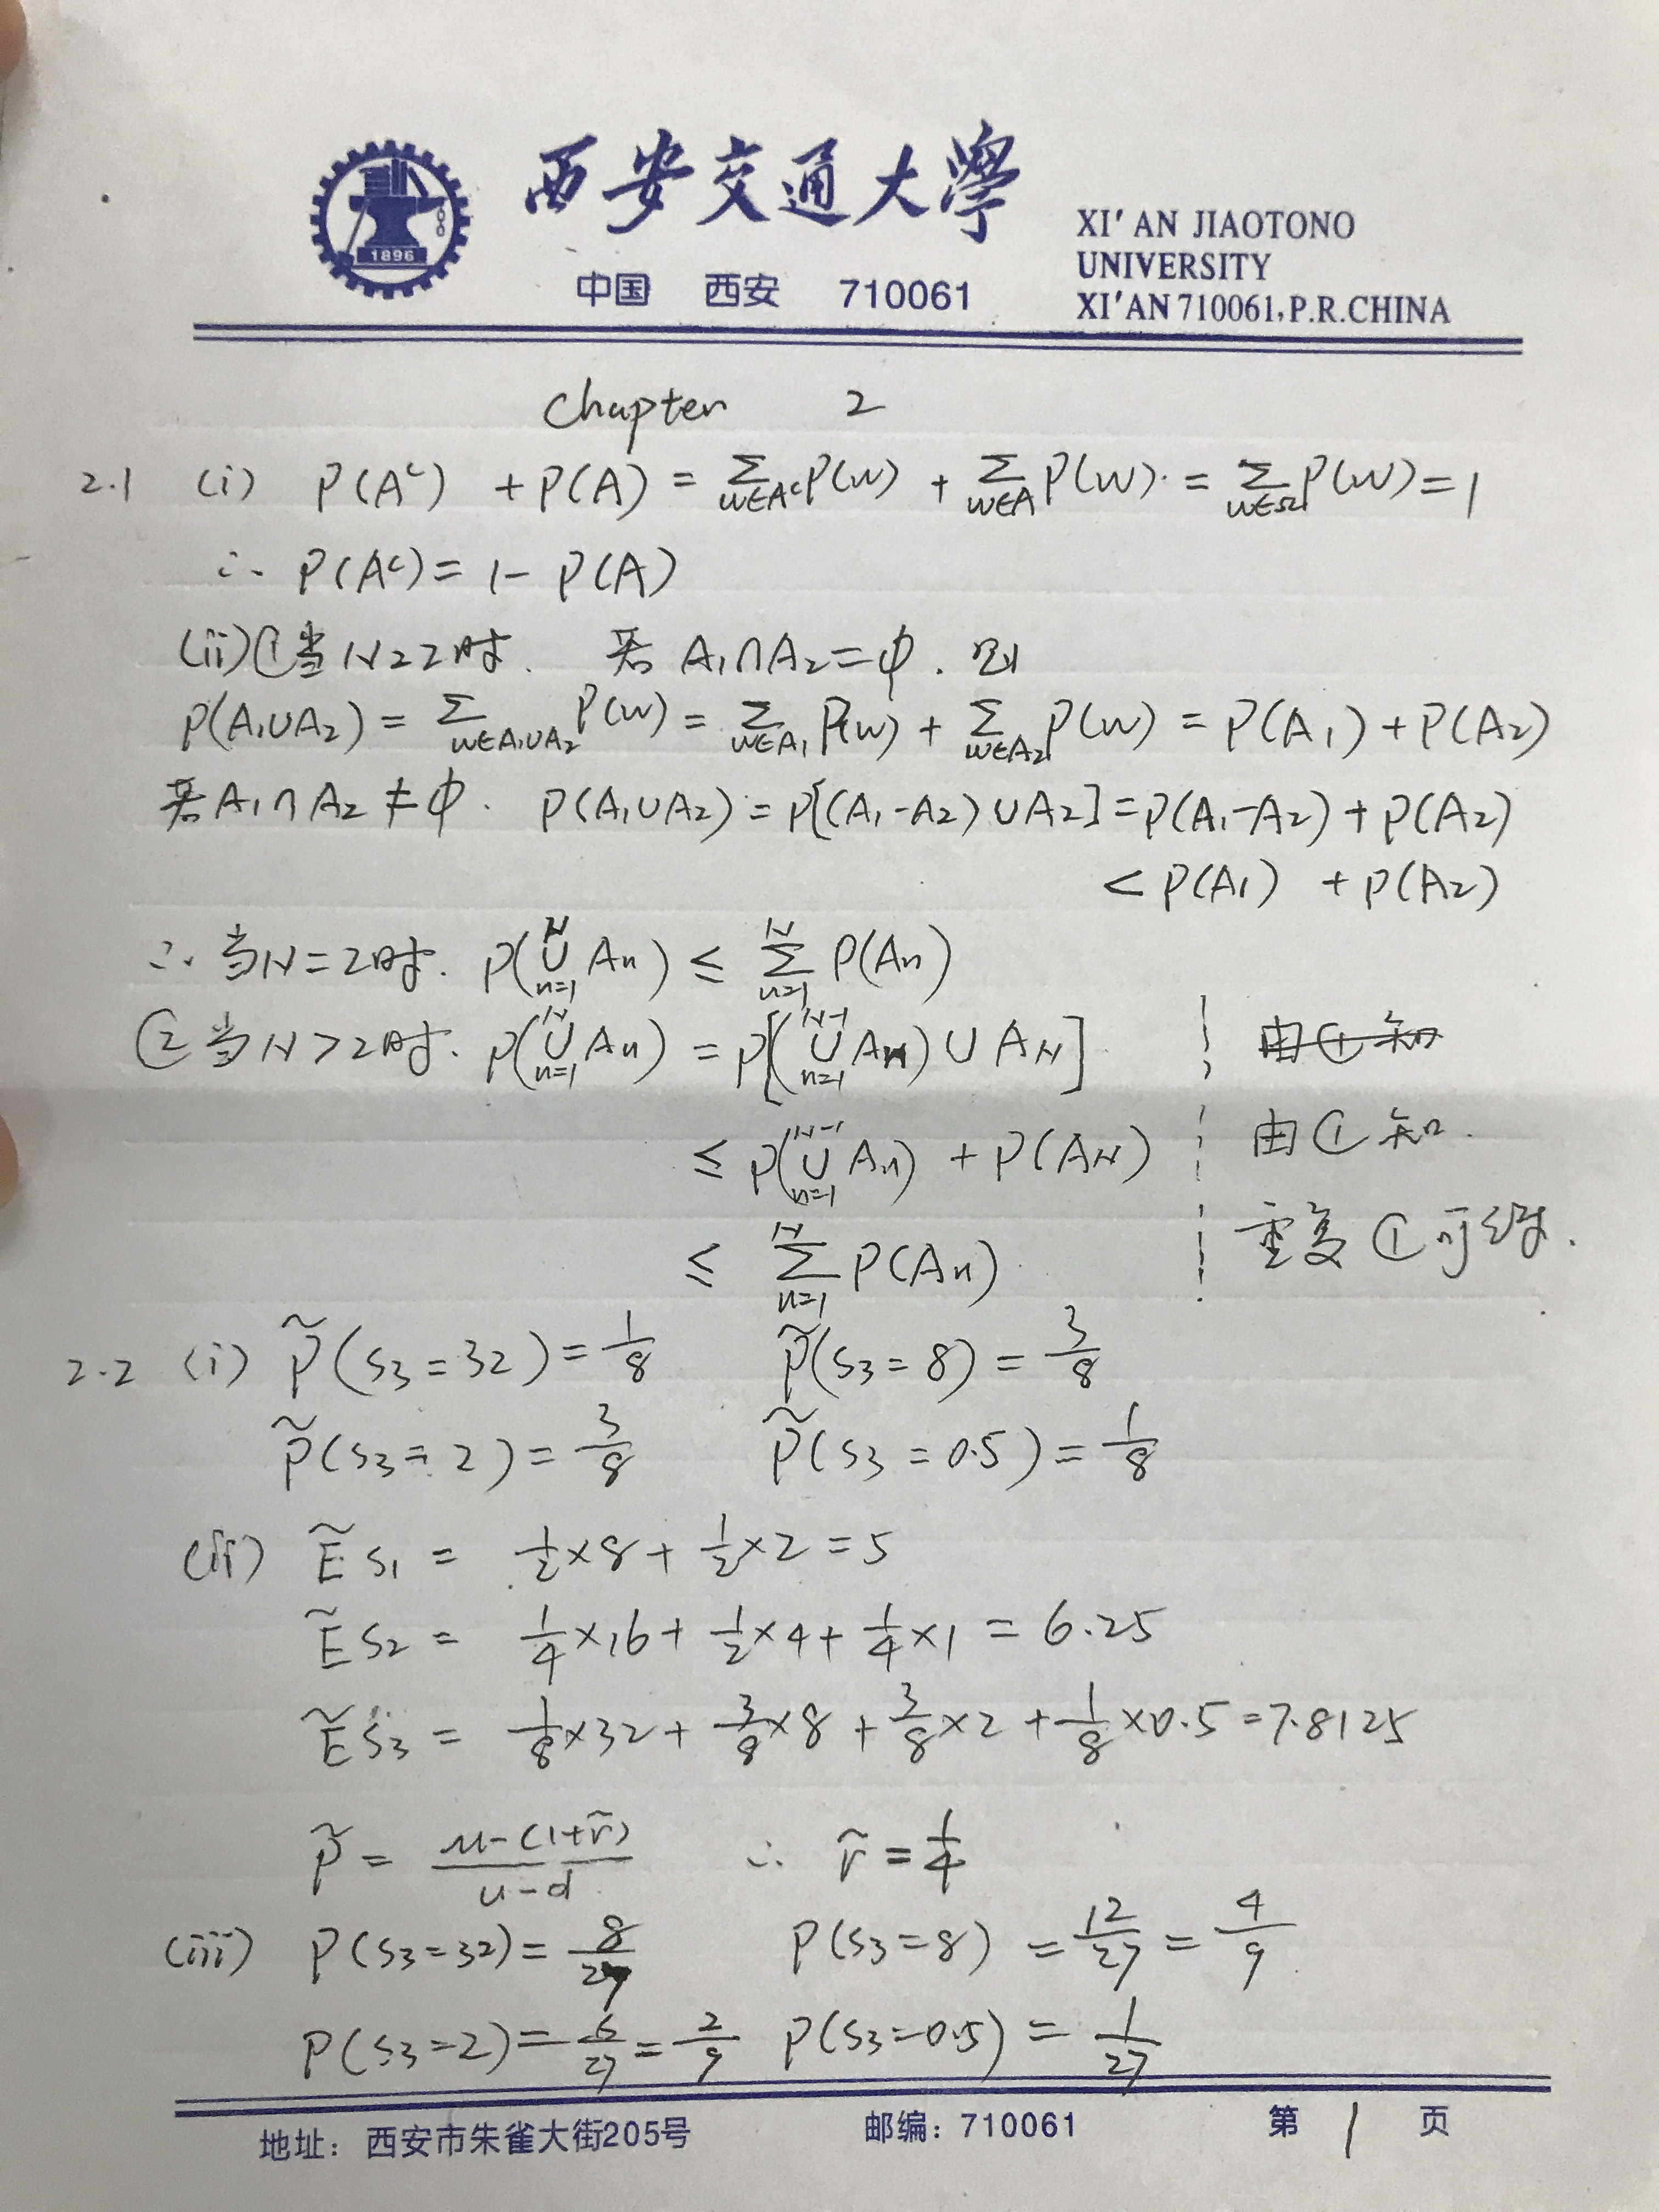 西安交通大學
1896
中国 西安 710061
XI'AN JIAOTONO
UNIVERSITY
XI'AN 710061, P.R.CHINA
Chapter 2
2.1 (i) P(Aᶜ) + P(A) = Σ_{w∈Aᶜ} P(w) + Σ_{w∈A} P(w) = Σ_{w∈Ω} P(w) = 1
∴ P(Aᶜ) = 1 - P(A)
(ii) ① 当 N=2时. 若 A₁∩A₂=∅. 则
P(A₁∪A₂) = Σ_{w∈A₁∪A₂} P(w) = Σ_{w∈A₁} P(w) + Σ_{w∈A₂} P(w) = P(A₁) + P(A₂)
若 A₁∩A₂ ≠ ∅. P(A₁∪A₂) = P[(A₁-A₂)∪A₂] = P(A₁-A₂) + P(A₂)
< P(A₁) + P(A₂)
∴ 当N=2时. P(∪_{n=1}^{N} Aₙ) ≤ Σ_{n=1}^{N} P(Aₙ)
② 当N>2时. P(∪_{n=1}^{N} Aₙ) = P[(∪_{n=1}^{N-1} Aₙ) ∪ A_N] 由①知
≤ P(∪_{n=1}^{N-1} Aₙ) + P(A_N) 由①知.
≤ Σ_{n=1}^{N} P(Aₙ) 重复①可得.
2.2 (i) P̃(S₃=32) = 1/8 P̃(S₃=8) = 3/8
P̃(S₃=2) = 3/8 P̃(S₃=0.5) = 1/8
(ii) ẼS₁ = 1/2×8 + 1/2×2 = 5
ẼS₂ = 1/4×16 + 1/2×4 + 1/4×1 = 6.25
ẼS₃ = 1/8×32 + 3/8×8 + 3/8×2 + 1/8×0.5 = 7.8125
P̃ = (u-(1+r̃))/(u-d) ∴ r̃ = 1/4
(iii) P(S₃=32) = 8/27 P(S₃=8) = 12/27 = 4/9
P(S₃=2) = 6/27 = 2/9 P(S₃=0.5) = 1/27
地址：西安市朱雀大街205号 邮编：710061 第 1 页